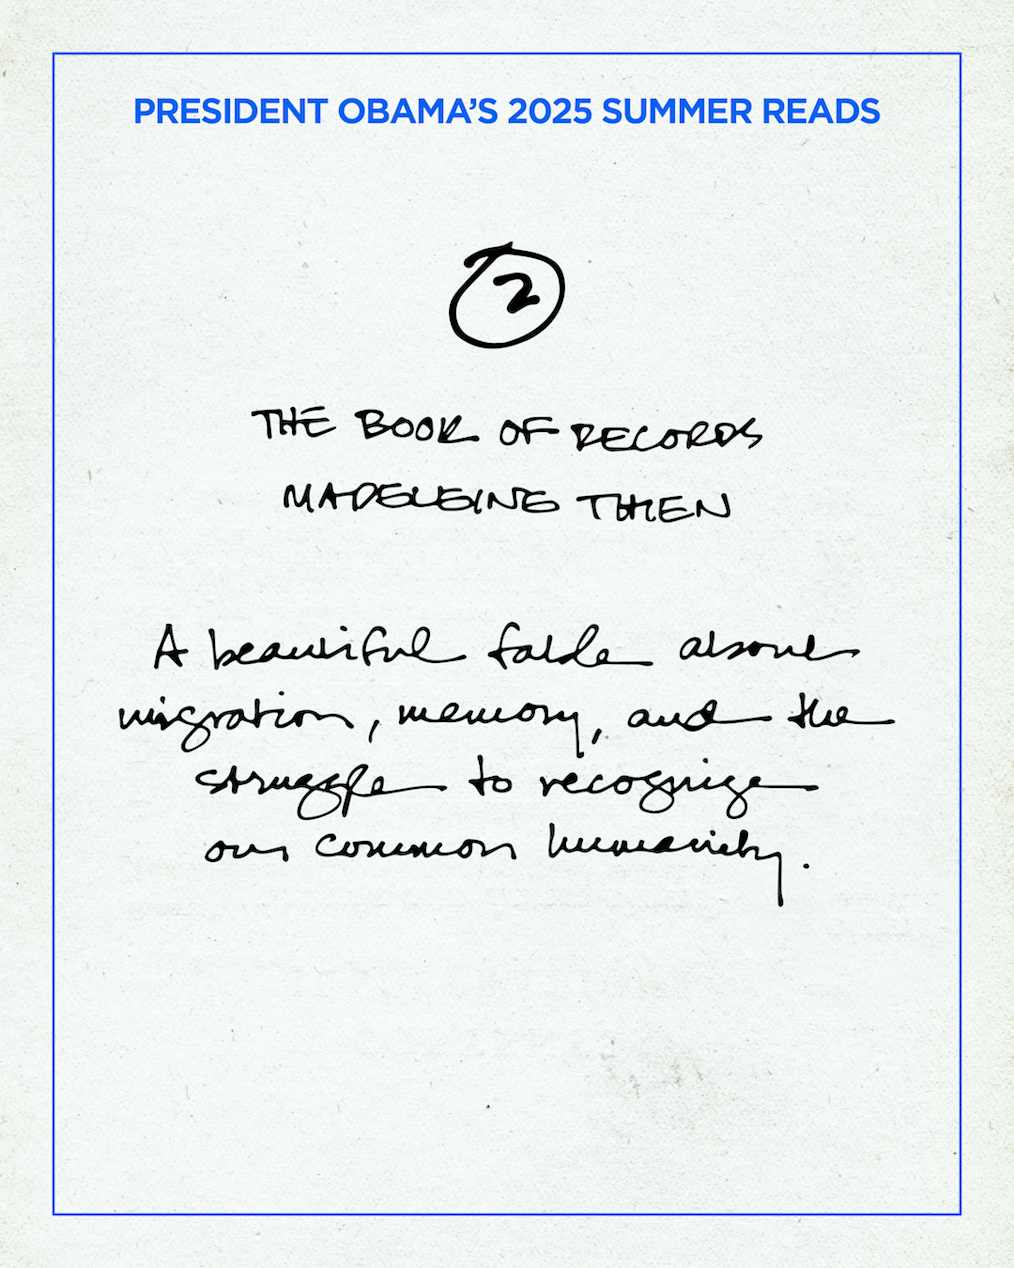 PRESIDENT OBAMA’S 2025 SUMMER READS
2
THE BOOK OF RECORDS
MADELEINE THIEN
A beautiful fable about
migration, memory, and the
struggle to recognize
our common humanity.